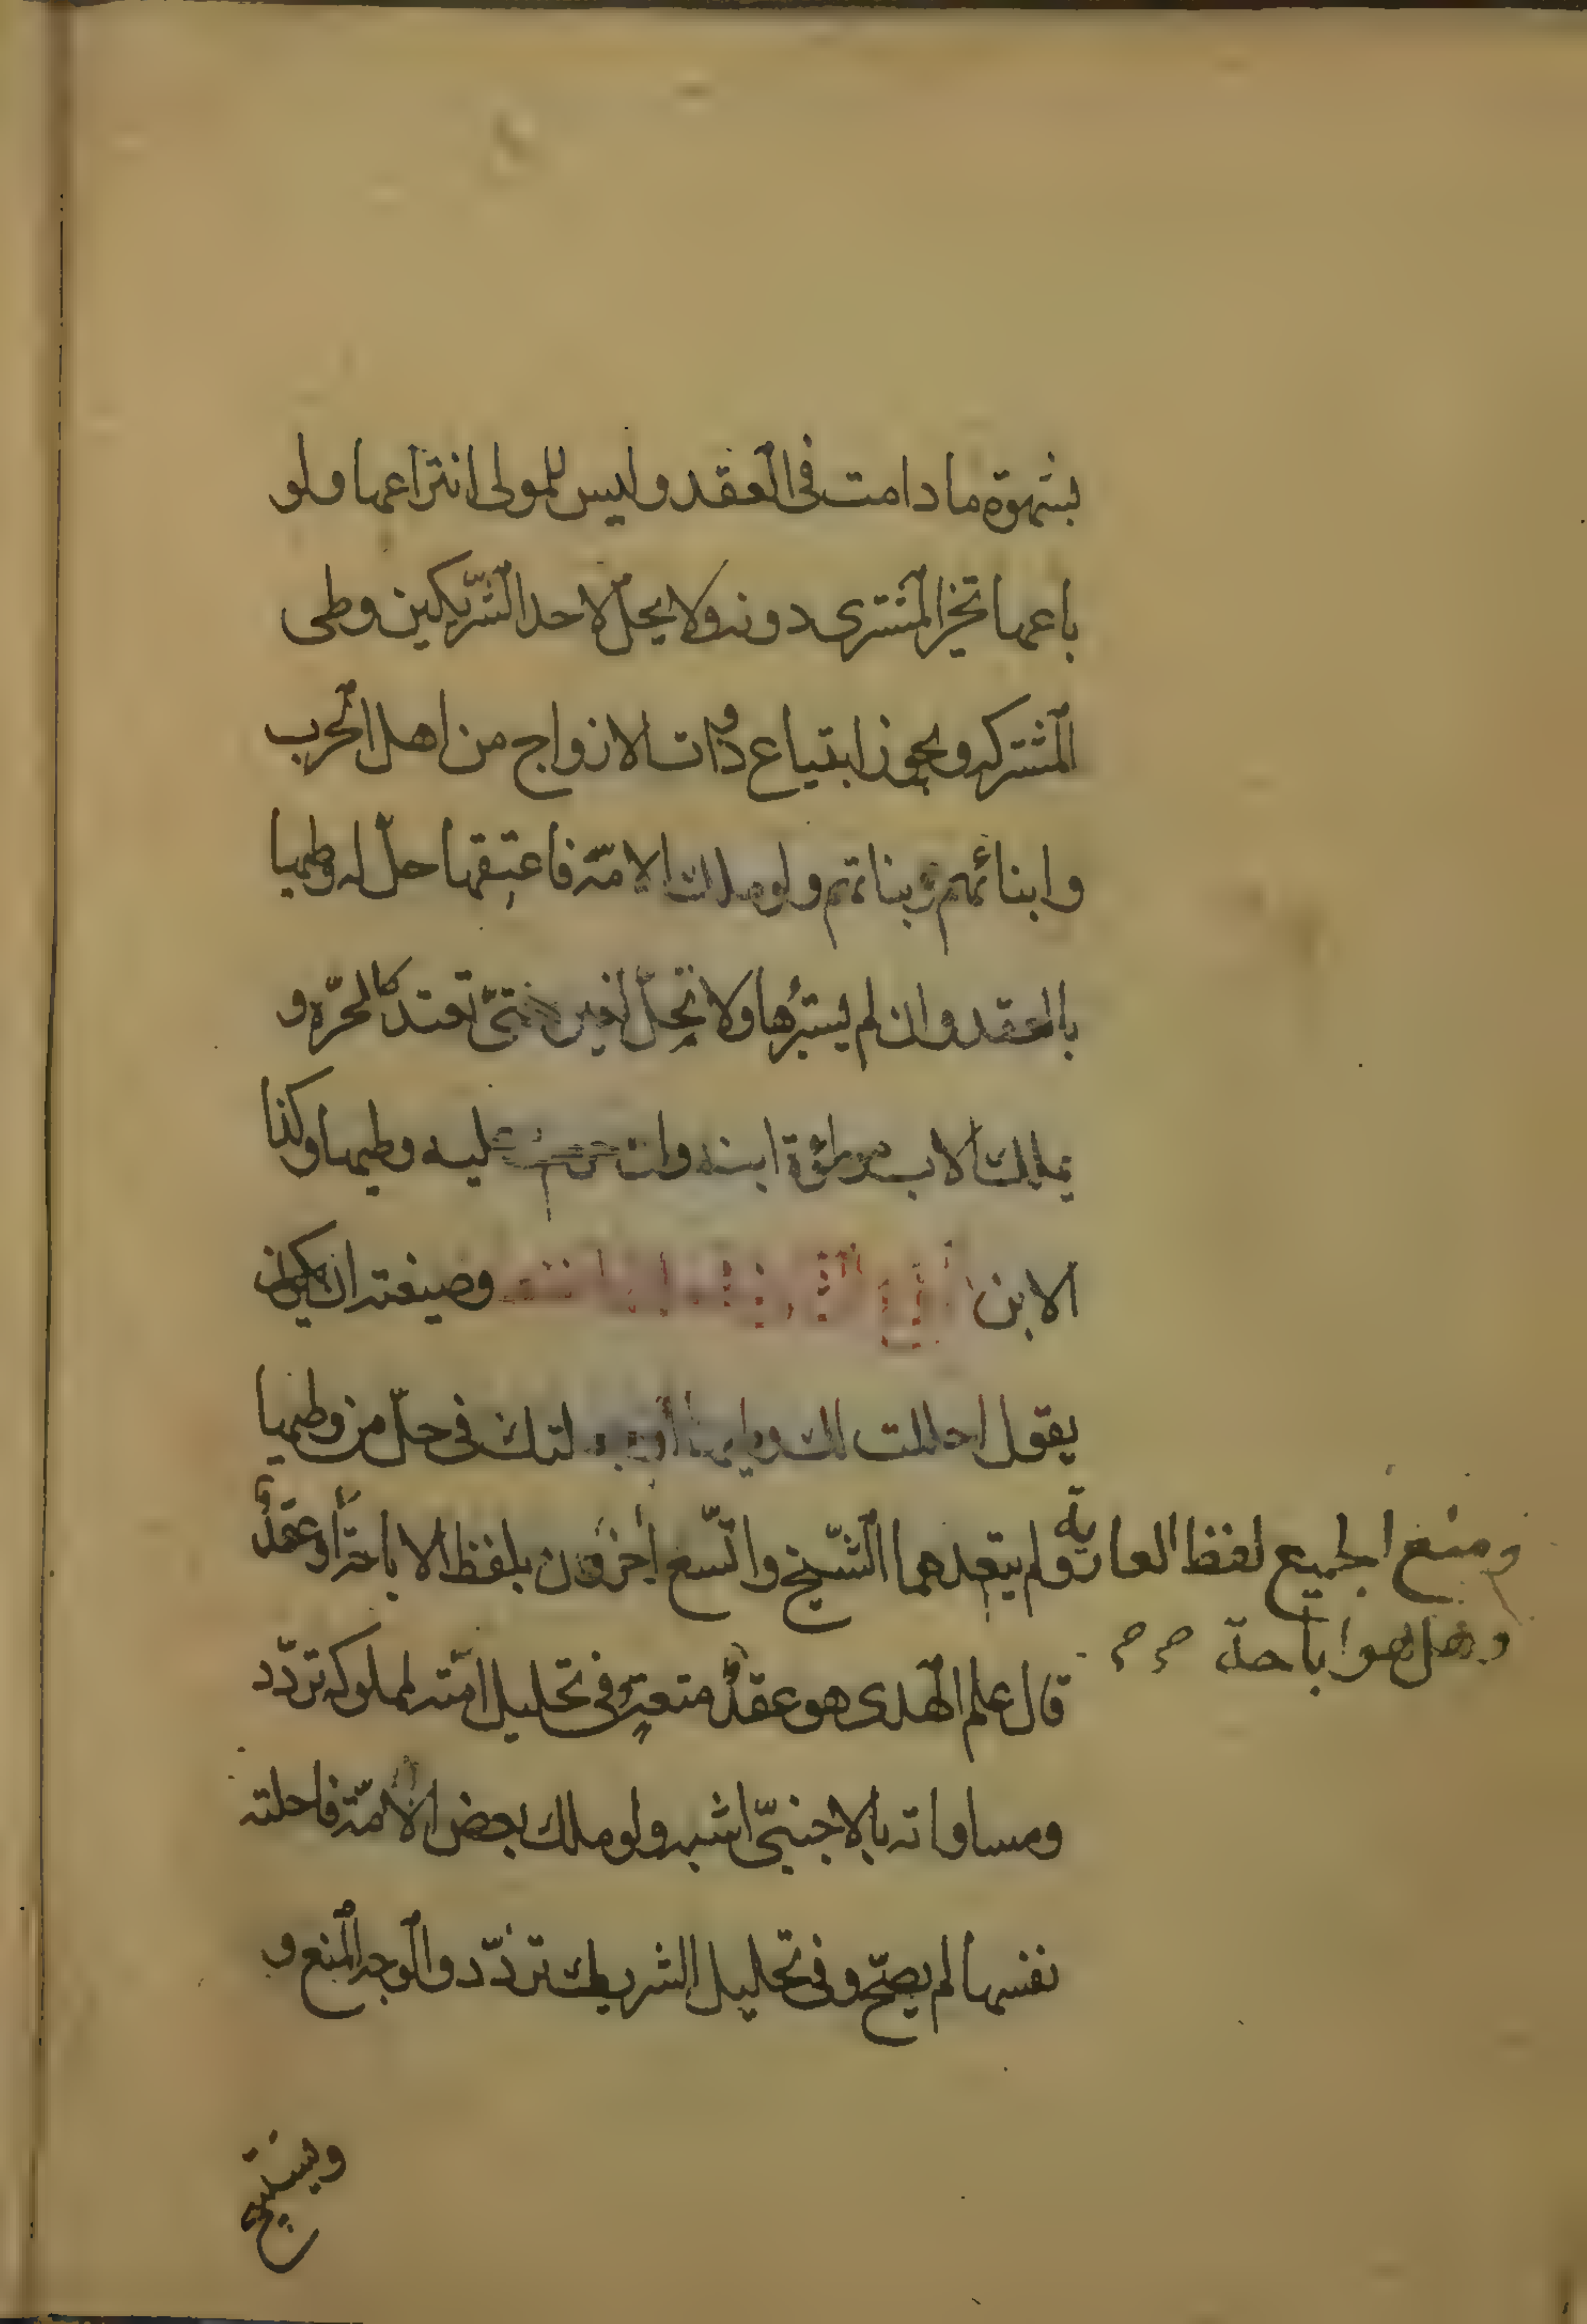 بشهوة ما دامت في العقد وليس للمولى انتزاعها ولو
باعها تخير المشترى دونه ولا يحلّ لاحد الشّريكين وطى
المشتركه ويجوز ابتياع ذوات الازواج من اهل الحرب
وابنائهم وبناتهم ولو ملك الامة فاعتقها حلّ له وطيها
بالعقد وان لم يستبرها ولا تحلّ لغيره حتىّ تعتد كالحرّه و
يملك الاب موطؤة ابنه وان حرم عليه وطيها وكذا
الابن وصيغته ان يكون
يقول احللت لك وطيها او جعلتك في حلّ من وطيها
ولم يتعدهما الشّيخ واتّسع آخرون بلفظ الاباحة
ومنع الجميع لفظ العارية
وهل هو اباحة او عقد
قال علم الهدى هو عقد متعة وفى تحليل امته لمملوكه تردّد
ومساواته بالاجنبىّ اشبه ولو ملك بعض الامة فاحلته
نفسها لم يصحّ وفى تحليل الشريك تردّد والوجه المنع و
ويستبيح